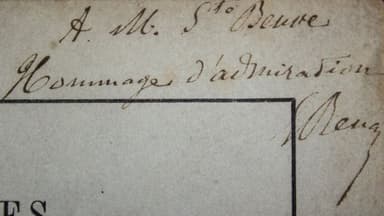 A. M. Ste Beuve
Hommage d'admiration
ES